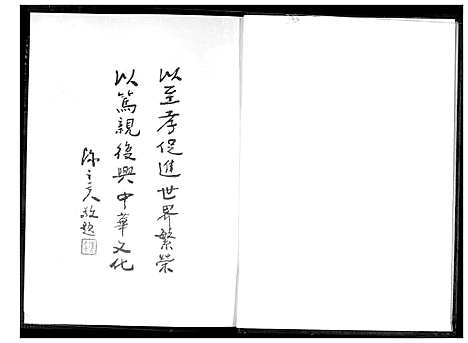 以至孝促進世界繁榮
以篤親復興中華文化
陳立夫敬題